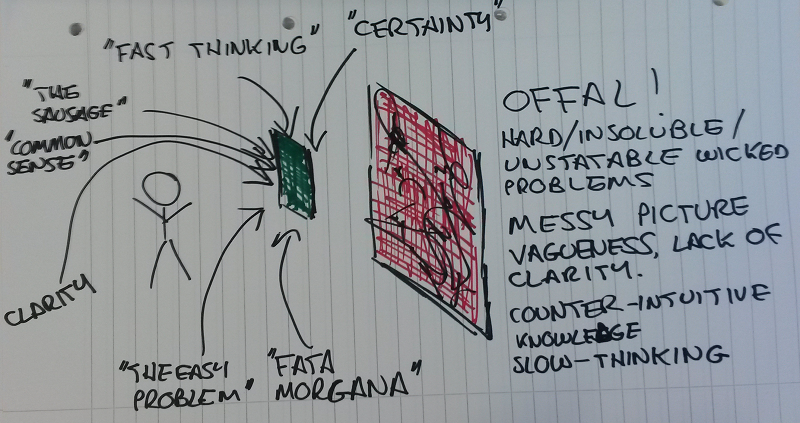 "FAST THINKING"
"CERTAINTY"
"THE
SAUSAGE"
"COMMON
SENSE"
CLARITY
"THE EASY
PROBLEM"
"FATA
MORGANA"
OFFAL!
HARD/INSOLUBLE/
UNSTATABLE WICKED
PROBLEMS
MESSY PICTURE
VAGUENESS, LACK OF
CLARITY.
COUNTER-INTUITIVE
KNOWLEDGE
SLOW-THINKING